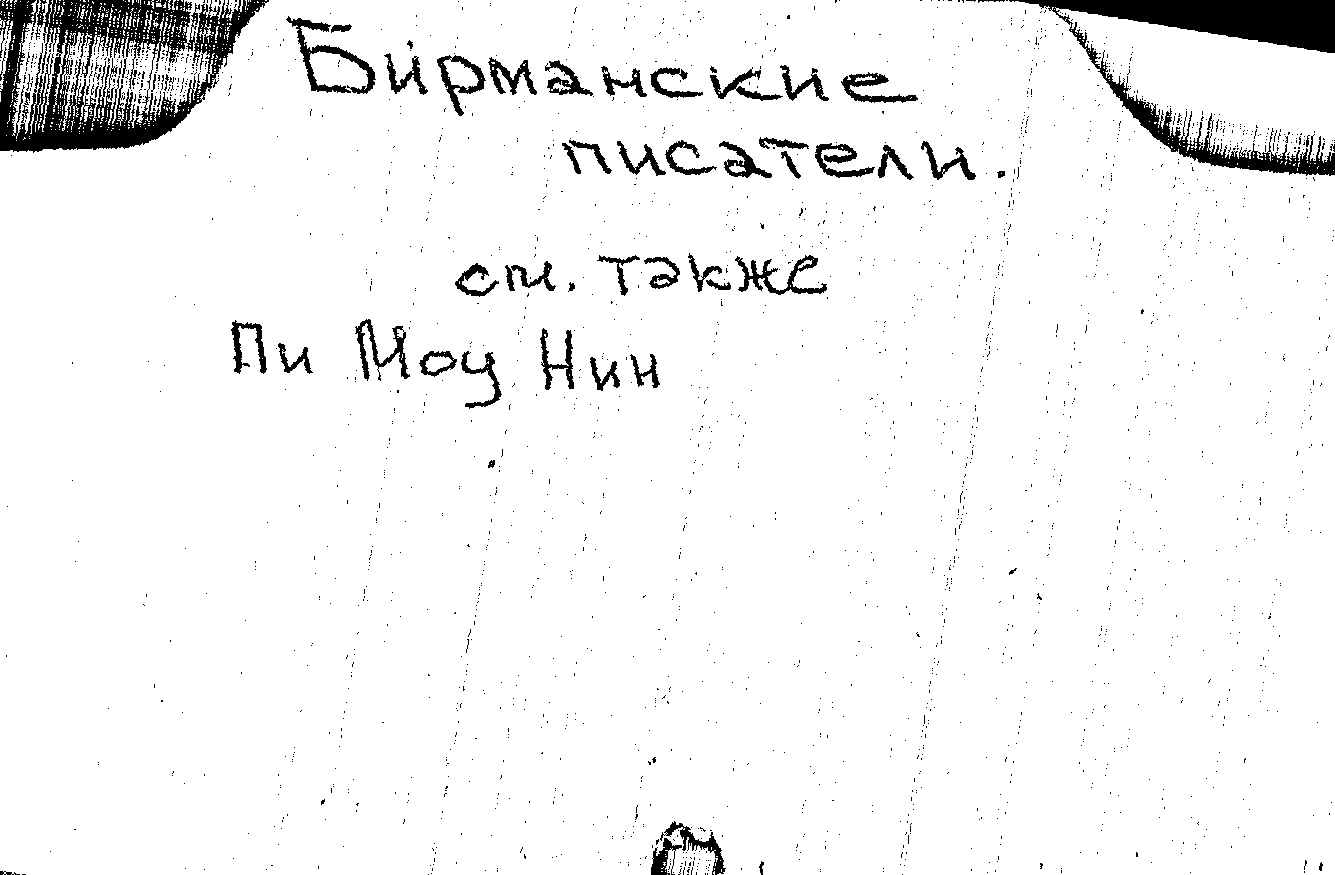 Бирманские
писатели.
см. также
Пи Моу Нин